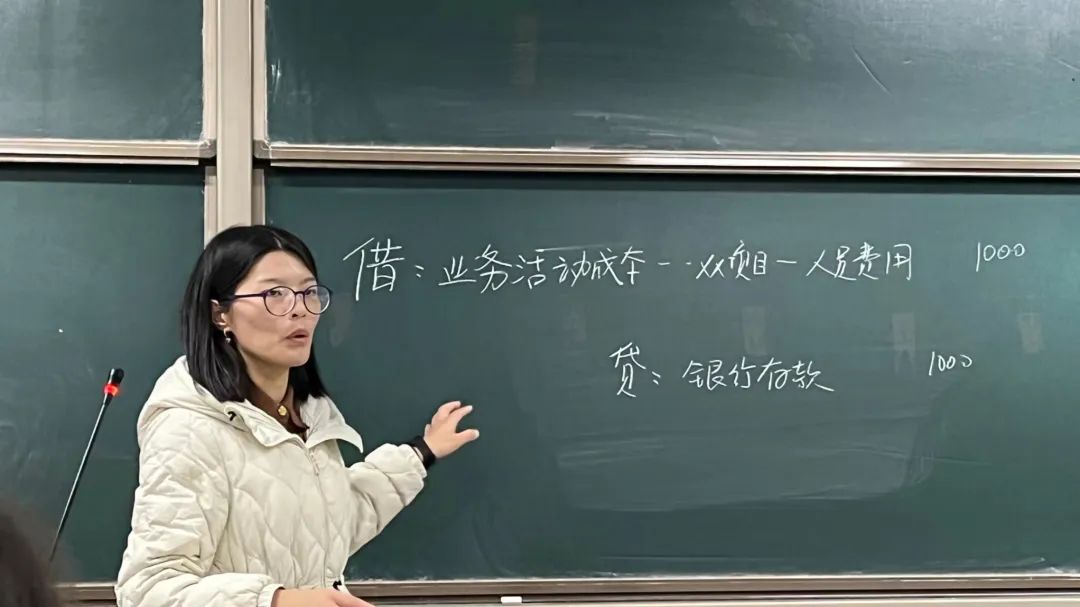 借：业务活动成本--xx项目-人员费用 1000
贷：银行存款 1000